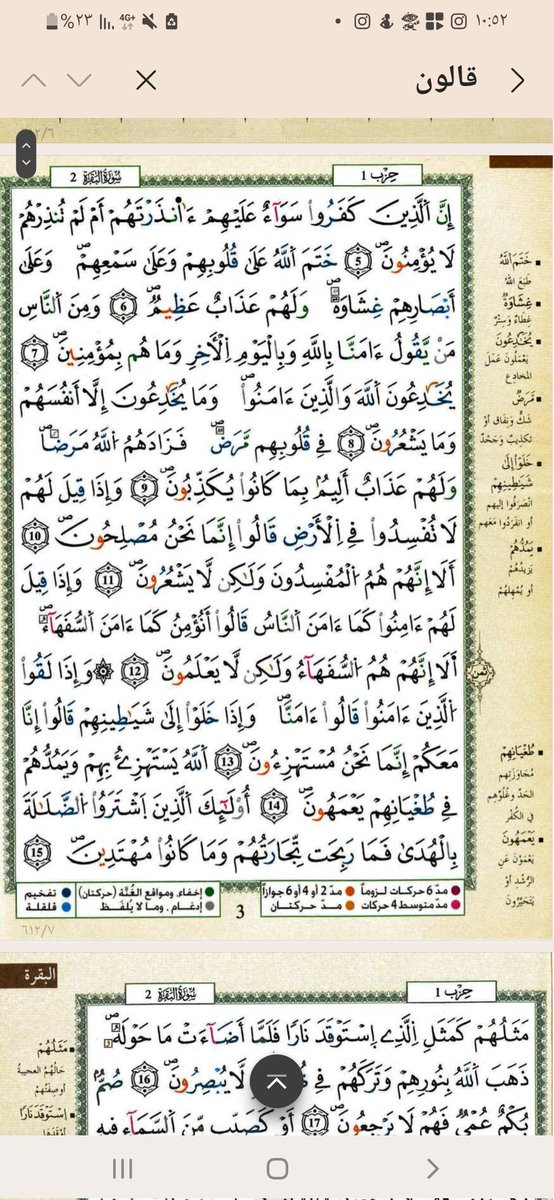 ١٠:٥٢
٪٢٣
4G+
قالون
٦١٢/٦
حزب 1
سُورَةُ البَقَرَةِ 2
إِنَّ اَ۬لذِينَ كَفَرُواْ سَوَآءٌ عَلَيْهِمْ ءَآنذَرْتَهُم أَمْ لَمْ تُنذِرْهُمْ
لَا يُؤْمِنُونَۖ 5 خَتَمَ اَ۬للَّهُ عَلَىٰ قُلُوبِهِمْ وَعَلَىٰ سَمْعِهِمْۖ وَعَلَىٰ
أَبْصَٰرِهِمْ غِشَٰوَةٌۖ وَلَهُمْ عَذَابٌ عَظِيمٌۖ 6 وَمِنَ اَ۬لنَّاسِ
مَنْ يَّقُولُ ءَامَنَّا بِاللَّهِ وَبِالْيَوْمِ اِ۬لْأٓخِرِ وَمَا هُم بِمُؤْمِنِينَۖ 7
يُخَٰدِعُونَ اَ۬للَّهَ وَالذِينَ ءَامَنُواْۖ وَمَا يُخَٰدِعُونَ إِلَّا أَنفُسَهُمْ
وَمَا يَشْعُرُونَۖ 8 فِي قُلُوبِهِم مَّرَضٌۖ فَزَادَهُمُ اُ۬للَّهُ مَرَضاًۖ
وَلَهُمْ عَذَابٌ أَلِيمُۢ بِمَا كَانُواْ يُكَذِّبُونَۖ 9 وَإِذَا قِيلَ لَهُمْ
لَا تُفْسِدُواْ فِي اِ۬لْأَرْضِ قَالُواْ إِنَّمَا نَحْنُ مُصْلِحُونَۖ 10
أَلَا إِنَّهُمْ هُمُ اُ۬لْمُفْسِدُونَ وَلَٰكِن لَّا يَشْعُرُونَۖ 11 وَإِذَا قِيلَ
لَهُمْ ءَامِنُواْ كَمَا ءَامَنَ اَ۬لنَّاسُ قَالُواْ أَنُؤْمِنُ كَمَا ءَامَنَ اَ۬لسُّفَهَآءُۖ
أَلَا إِنَّهُمْ هُمُ اُ۬لسُّفَهَآءُ وَلَٰكِن لَّا يَعْلَمُونَۖ 12 ۞ وَإِذَا لَقُواْ
اُ۬لذِينَ ءَامَنُواْ قَالُواْ ءَامَنَّاۖ وَإِذَا خَلَوْاْ إِلَىٰ شَيَٰطِينِهِمْ قَالُواْ إِنَّا
مَعَكُمْ إِنَّمَا نَحْنُ مُسْتَهْزِءُونَۖ 13 اَ۬للَّهُ يَسْتَهْزِئُ بِهِمْ وَيَمُدُّهُمْ
فِي طُغْيَٰنِهِمْ يَعْمَهُونَۖ 14 أُوْلَٰٓئِكَ اَ۬لذِينَ اَ۪شْتَرَوُاْ اُ۬لضَّلَٰلَةَ
بِالْهُدَىٰ فَمَا رَبِحَت تِّجَٰرَتُهُمْ وَمَا كَانُواْ مُهْتَدِينَۖ 15
خَتَمَ اللَّهُ
طَبَعَ اللهُ
غِشَاوَةٌ
غِطَاءٌ وَسِتْرٌ
يُخَٰدِعُونَ
يَعْمَلُونَ عَمَلَ
المخادِعِ
مَرَضٌ
شَكٌّ وَنِفَاقٌ أَوْ
تَكْذِيبٌ وَجَحْدٌ
خَلَوْاْ إِلَىٰ
شَيَٰطِينِهِمْ
انْصَرَفُوا إليهم
أو انفَرَدُوا مَعَهم
يَمُدُّهُمْ
يَزِيدُهُمْ
أو يُمْهِلُهُمْ
ثمن
طُغْيَٰنِهِمْ
مُجَاوَزَتِهِم
الحَدَّ وغُلُوِّهِم
في الكُفْرِ
يَعْمَهُونَ
يَعْمَوْنَ عَنِ
الرُّشْدِ أَوْ
يَتَحَيَّرُونَ
مدّ 6 حركات لزوماً
مدّ 2 أو 4 أو 6 جوازاً
مدّ متوسط 4 حركات
مدّ حركتان
3
إخفاء، ومواقع الغُنَّة (حركتان)
إدغام، وما لا يُلفَظ
تفخيم
قلقلة
٦١٢/٧
البقرة
حزب 1
سُورَةُ البَقَرَةِ 2
مَثَلُهُمْ كَمَثَلِ اِ۬لذِي اِ۪سْتَوْقَدَ نَاراً فَلَمَّا أَضَآءَتْ مَا حَوْلَهُۥ
ذَهَبَ اَ۬للَّهُ بِنُورِهِمْ وَتَرَكَهُمْ فِي لَّا يُبْصِرُونَۖ 16 صُمُّۢ
بُكْمٌ عُمْيٌ فَهُمْ لَا يَرْجِعُونَۖ 17 أَوْ كَصَيِّبٍ مِّنَ اَ۬لسَّمَآءِ فِيهِ
مَثَلُهُمْ
حَالُهُمُ العجيبةُ
أو صِفَتُهُمْ
اِسْتَوْقَدَ نَاراً
أَوْقَدَهَا